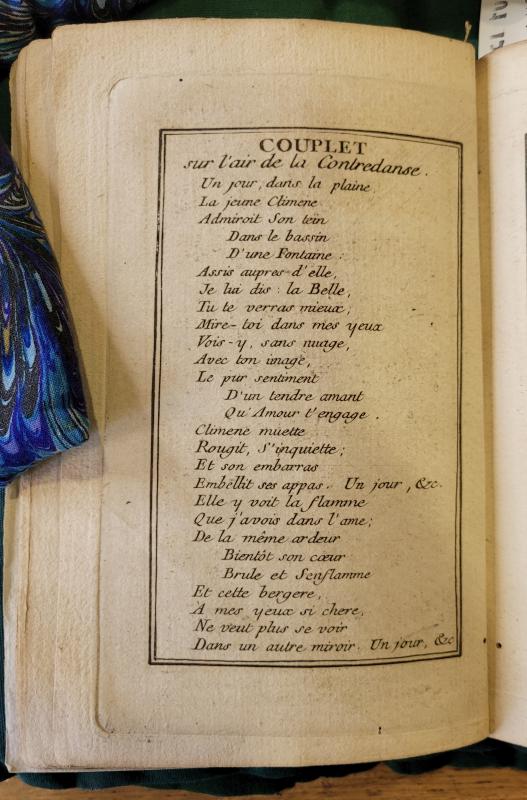 COUPLET
sur l'air de la Contredanse.
Un jour, dans la plaine,
La jeune Climene
Admiroit Son tein
Dans le bassin
D'une Fontaine :
Assis aupres-d'elle,
Je lui dis : la Belle,
Tu te verras mieux,
Mire-toi dans mes yeux
Vois-y, sans nuage,
Avec ton image,
Le pur sentiment
D'un tendre amant
Qu'Amour t'engage.
Climene muette
Rougit, S'inquiette;
Et son embarras
Embéllit ses appas. Un jour, &c.
Elle y voit la flamme
Que j'avois dans l'ame;
De la même ardeur
Bientôt son cœur
Brule et Senflamme
Et cette bergere,
A mes yeux si chere,
Ne veut plus se voir
Dans un autre miroir. Un jour, &c